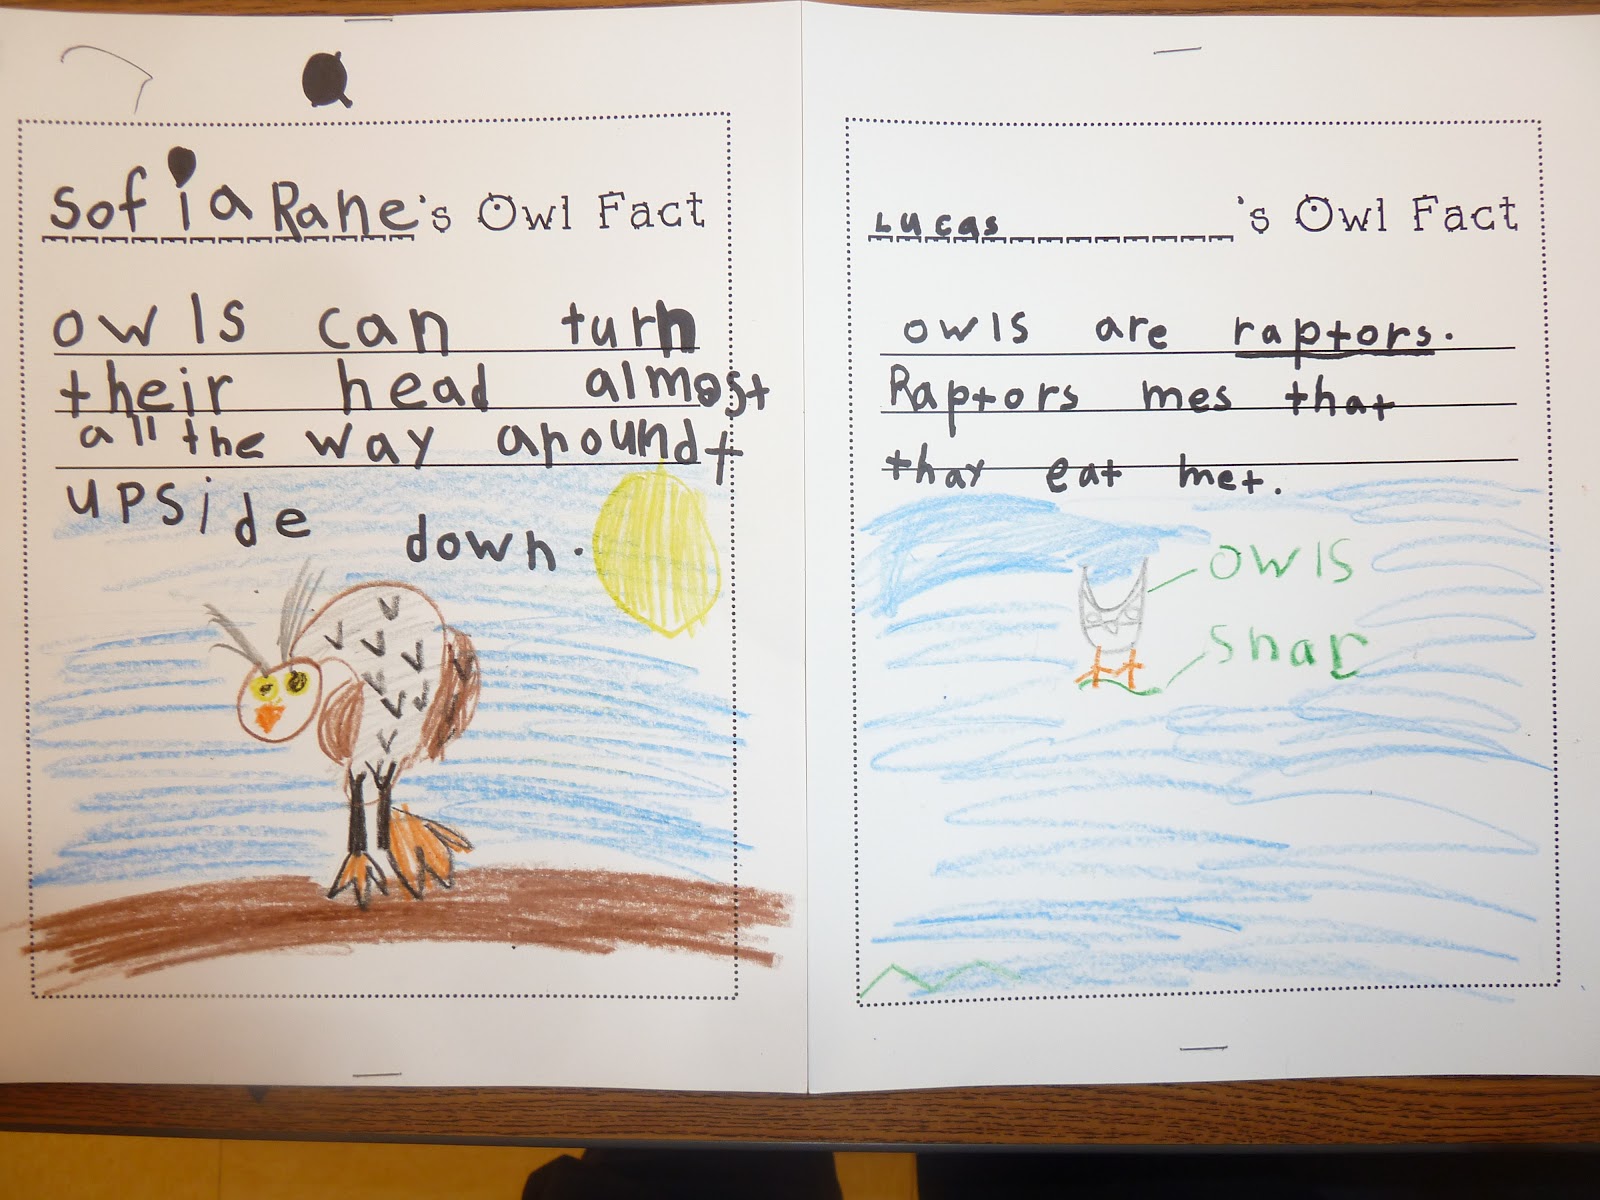 Sofia Rane's Owl Fact
owls can turn
their head almost
all the way around +
upside down.
Lucas 's Owl Fact
owls are raptors.
Raptors mes that
thay eat met.
owls
Snar